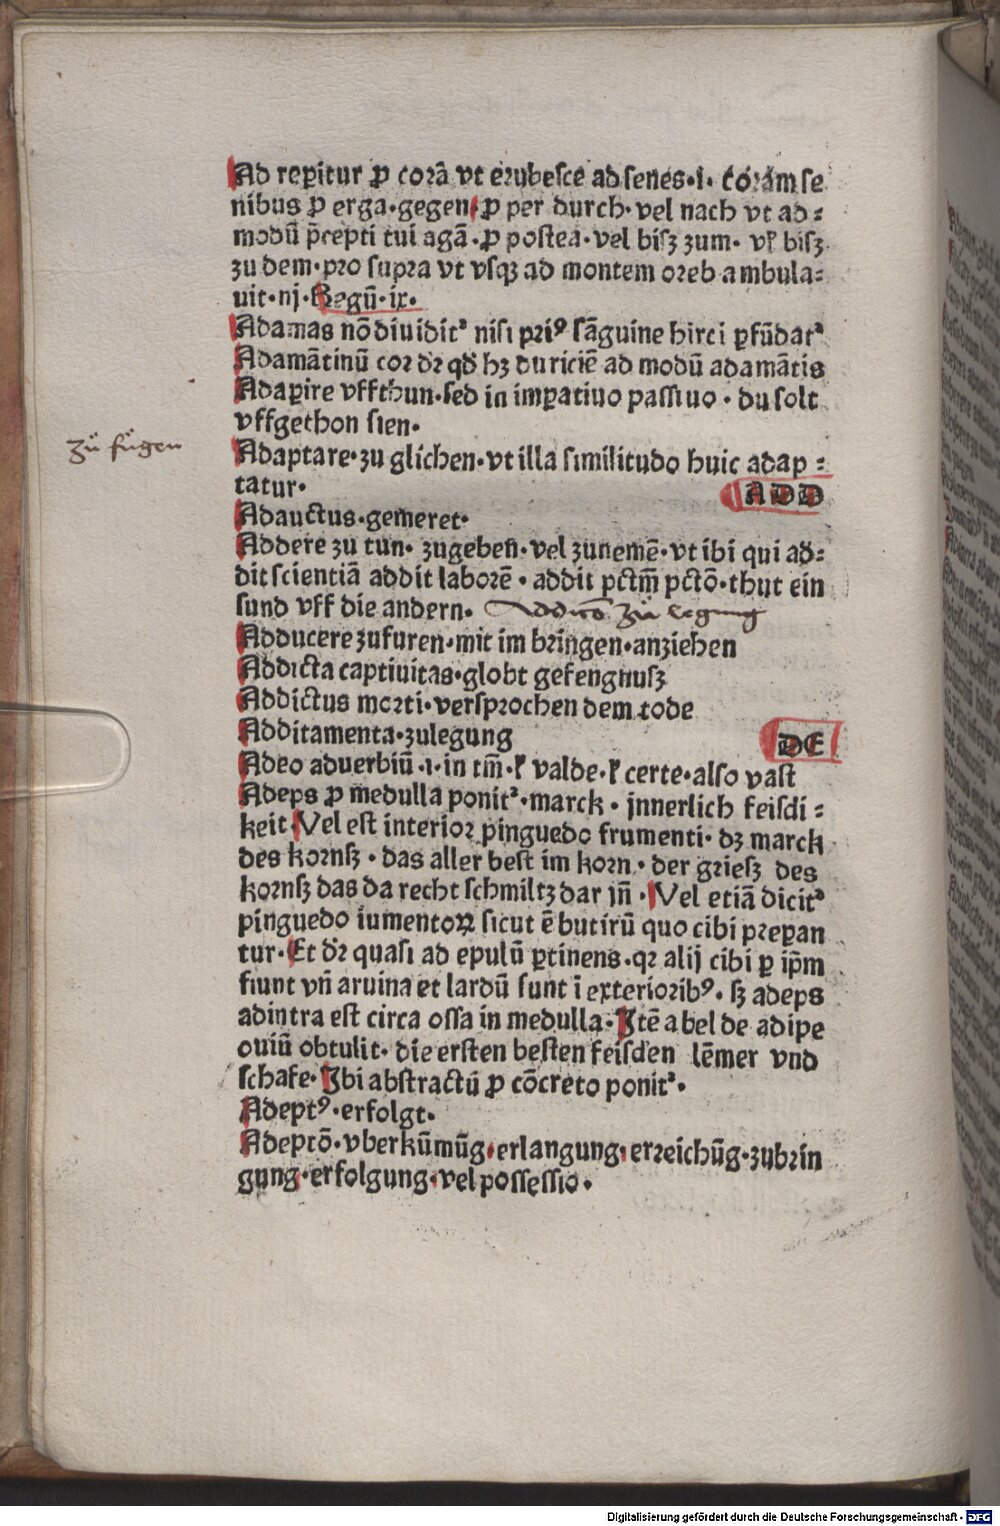 Ad reꝑitur ꝓ corā vt erubesce ad senes·i· corām se
nibus ꝓ erga·gegen ꝓ per durch· vel nach vt ad⸗
modū p̄cepti tui agā·ꝓ postea·vel bisz zum· vl̓ bisz
zu dem·pro supra vt vsqꝫ ad montem oreb ambula⸗
uit·iij·Regū·ix·
Adamas nō diuidit᷑ nisi priꝰ sāguine hirci ꝑfūdat᷑
Adamātinū cor dr̄ qd̓ hꝫ duriciē ad modū adamātis
Adaꝑire vffthun·sed in imꝑatiuo passiuo· du solt
vffgethon sien·
zů fůgen
Adaptare·zu glichen·vt illa similitudo huic adap⸗
tatur·
ADD
Adauctus·gemeret·
Addere zu tun· zugeben̄·vel zunemē·vt ibi qui ad⸗
dit scientiā addit laborē· addit pctm̄ pctō·thut ein
sund vff die andern· Addicō zů legung
Adducere zufuren·mit im bringen·anziehen
Addicta captiuitas·globt gefengnusz
Addictus morti·versprochen dem tode
Additamenta·zulegung
DE
Adeo aduerbiū·i·in tm̄·l̓ valde·l̓ certe·also vast
Adeps ꝓ medulla ponit᷑·marck· jnnerlich feiscli⸗
keit·Vel est interior pinguedo frumenti· dꝫ marck
des kornsz· das aller best im korn· der griesz des
kornsz das da recht schmiltz dar jn̄·Vel etiā dicit᷑
pinguedo iumentoꝝ sicut ē butirū quo cibi preꝑan
tur·Et dr̄ quasi ad epulū ꝑtinens·qꝛ alij cibi ꝑ ip̄m
fiunt vn̄ aruina et lardū sunt ī exterioribꝰ· sꝫ adeps
adintra est circa ossa in medulla·Jtē abel de adipe
ouiū obtulit· die ersten besten feiscten lēmer vnd
schafe·Jbi abstractū ꝓ cōcreto ponit᷑·
Adeptꝰ·erfolgt·
Adeptō·vberkūmūg·erlangung·erreichūg·zubrin
gung·erfolgung·vel possessio·
Digitalisierung gefördert durch die Deutsche Forschungsgemeinschaft - DFG